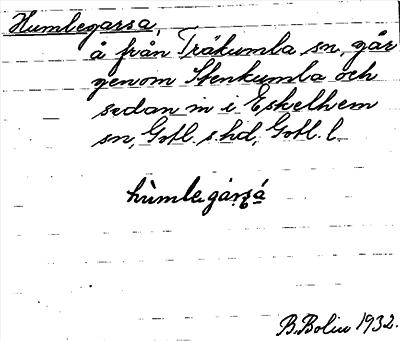 Humlegarsa,
å från Träkumla sn, går
genom Stenkumla och
sedan in i Eskelhem
sn, Gotl. s. hd, Gotl. l.
hùmlegàrsá
B. Bolin 1932.